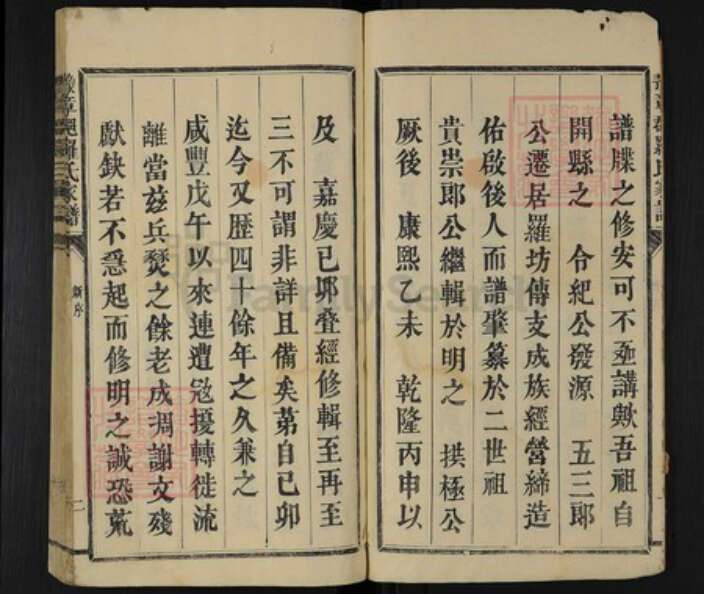 譜牒之修安可不亟講歟吾祖自
開縣之 令紀公發源 五三郎
公遷居羅坊傳支成族經營締造
佑啟後人而譜肇纂於二世祖
貴崇郎公繼輯於明之 拱極公
厥後 康熙乙未 乾隆丙申以
及 嘉慶已夘叠經修輯至再至
三不可謂非詳且備矣苐自己卯
迄今又歷四十餘年之久兼之
咸豐戊午以來連遭冦擾轉徙流
離當兹兵燹之餘老成凋謝文殘
獻缺若不亟起而修明之誠恐荒
豫章郡羅氏家譜
新序
二
FamilySearch